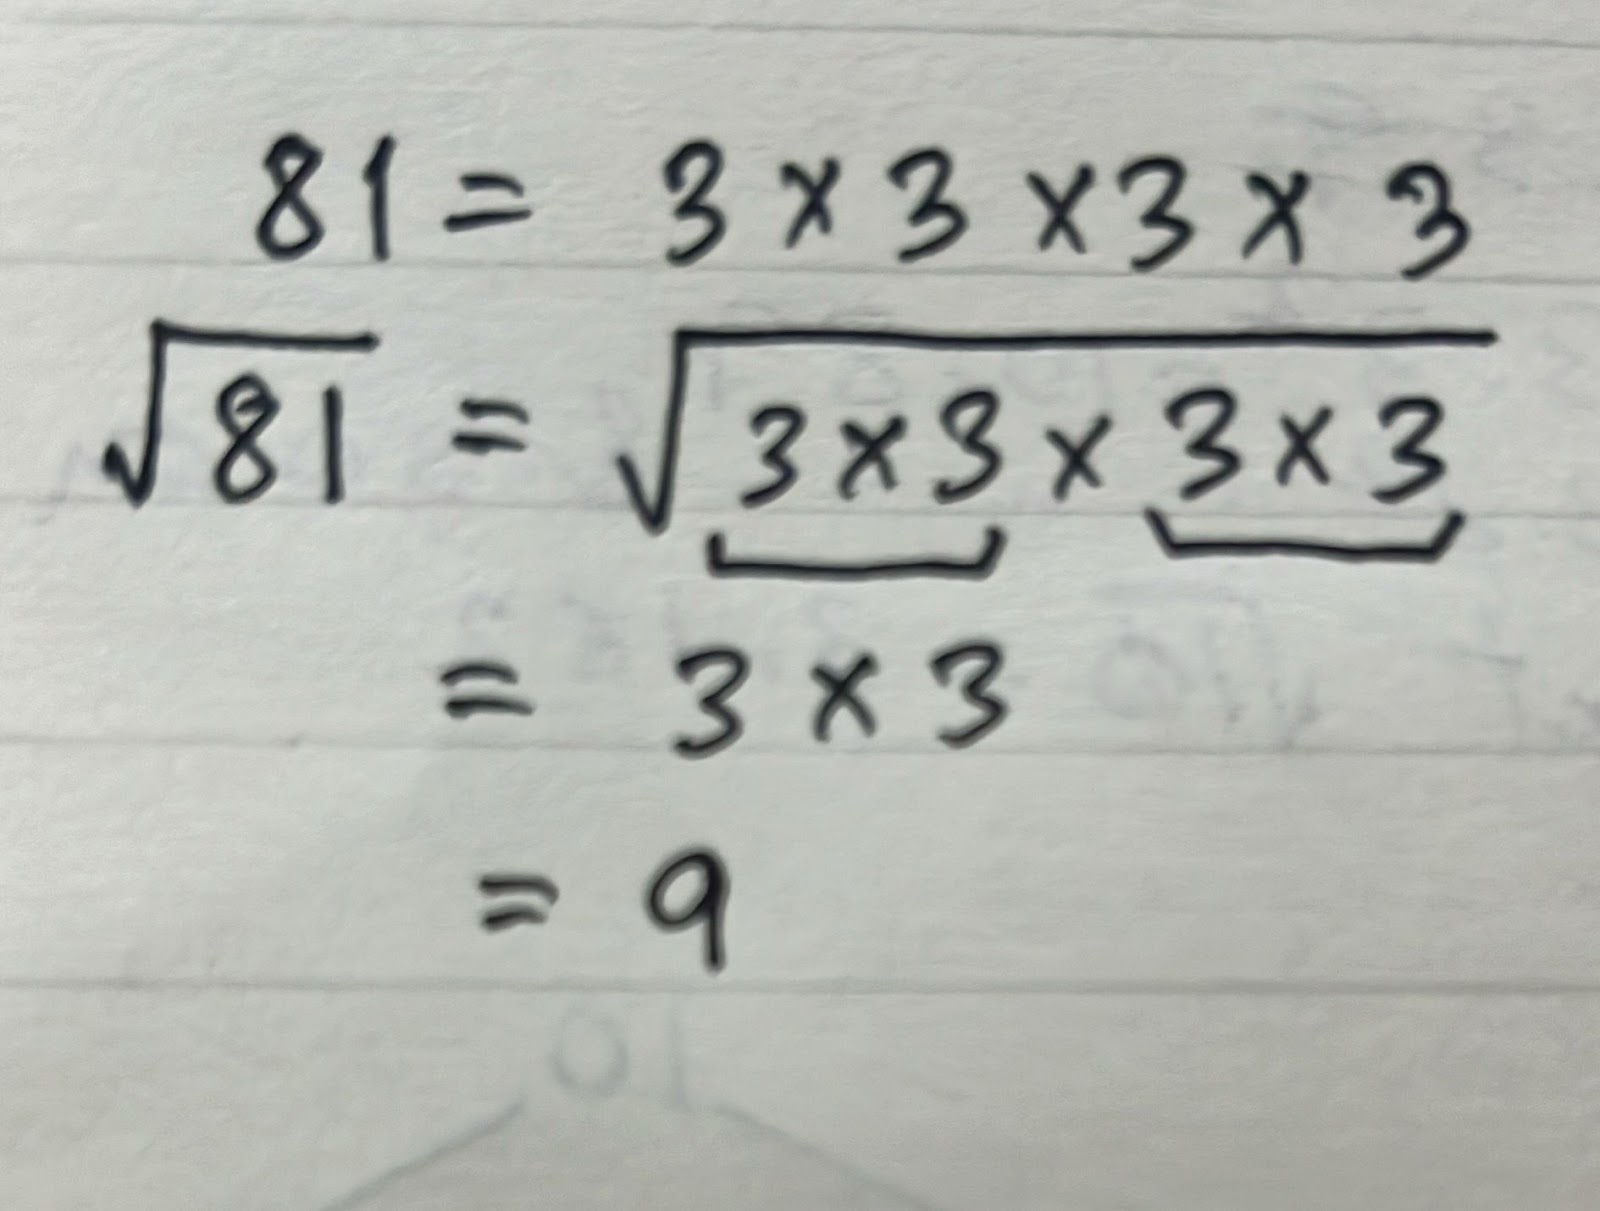 81 = 3 × 3 × 3 × 3
√81 = √3 × 3 × 3 × 3
= 3 × 3
= 9